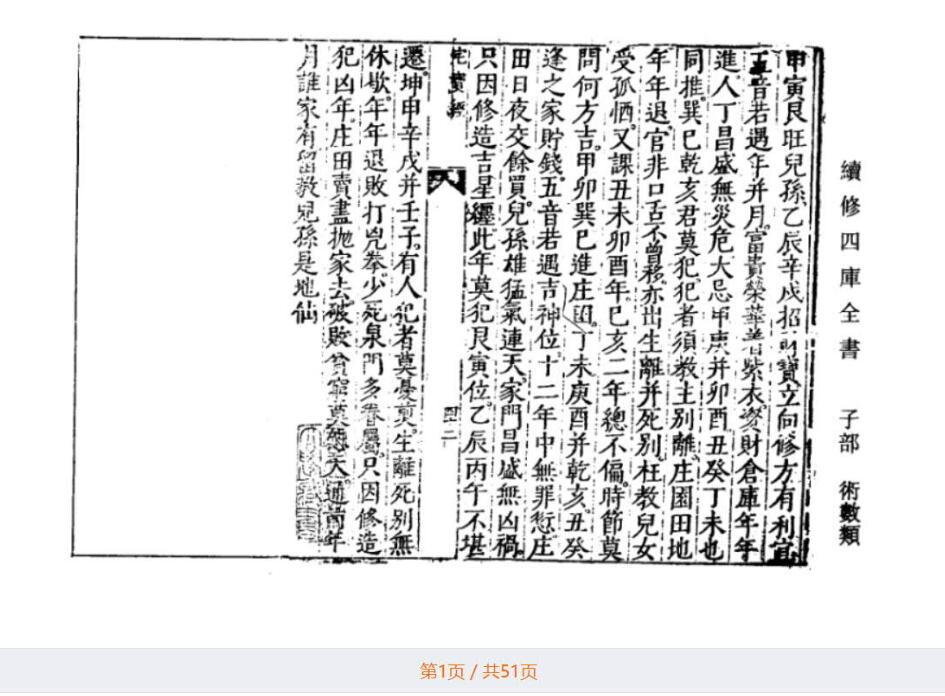 續修四庫全書 子部 術數類
甲寅艮旺兒孫乙辰辛戌招財寶立向修方有利宜
音若遇年并月富貴榮華着紫衣資財倉庫年年
進人丁昌盛無災危大忌甲庚并卯酉丑癸丁未也
同推巽巳乾亥君莫犯犯者須教主別離庄園田地
年年退官非口舌不曾移亦出生離并死別枉教兒女
受孤恓又課丑未卯酉年巳亥二年總不偏時節莫
問何方吉甲卯巽巳進庄田丁未庚酉并乾亥丑癸
逢之家貯錢五音若遇吉神位十二年中無罪愆庄
田日夜交餘買兒孫雄猛氣連天家門昌盛無凶禍
只因修造吉星纏此年莫犯艮寅位乙辰丙午不堪
四二
遷坤申辛戌并壬子有人犯者莫憂煎生離死別無
休歇年年退敗打兇拳少死泉門多眷屬只因修造
犯凶年庄田賣盡拋家去破敗貧窮莫怨天通前年
月誰家有留教兒孫是地仙
第1页 / 共51页